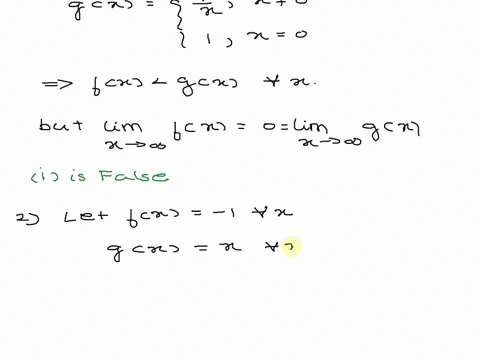 g(x) = { 1/x, x ≠ 0
{ 1, x = 0
=> f(x) < g(x) ∀ x.
but lim x→∞ f(x) = 0 = lim x→∞ g(x)
(1) is False
2) Let f(x) = -1 ∀ x
g(x) = x ∀